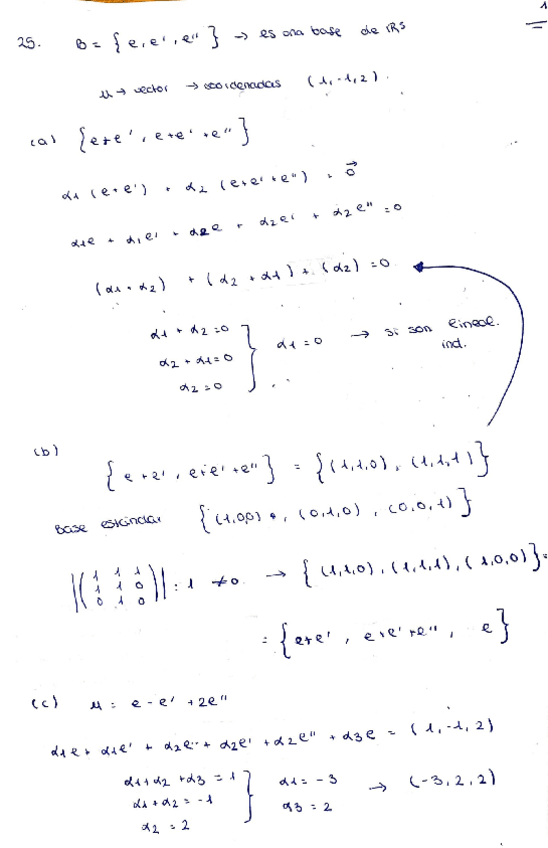 1
25. B = { e, e', e'' } → es una base de R3
u → vector → coordenadas (1, -1, 2).
(a) { e+e', e+e'+e'' }
α1 (e+e') + α2 (e+e'+e'') = 0⃗
α1e + α1e' + α2e + α2e' + α2e'' = 0
(α1 + α2) + (α2 + α1) + (α2) = 0
α1 + α2 = 0
α2 + α1 = 0 } α1 = 0 → si son lineal. ind.
α2 = 0
(b)
{ e+e', e+e'+e'' } = { (1,1,0), (1,1,1) }
Base estándar { (1,0,0), (0,1,0), (0,0,1) }
|( 1 1 1
1 1 0
0 1 0 )| = 1 ≠ 0 → { (1,1,0), (1,1,1), (1,0,0) } =
= { e+e', e+e'+e'', e }
(c) u = e - e' + 2e''
α1e + α1e' + α2e'' + α2e' + α2e'' + α3e = (1, -1, 2)
α1 + α2 + α3 = 1
α1 + α2 = -1 } α1 = -3 → (-3, 2, 2)
α2 = 2 α3 = 2